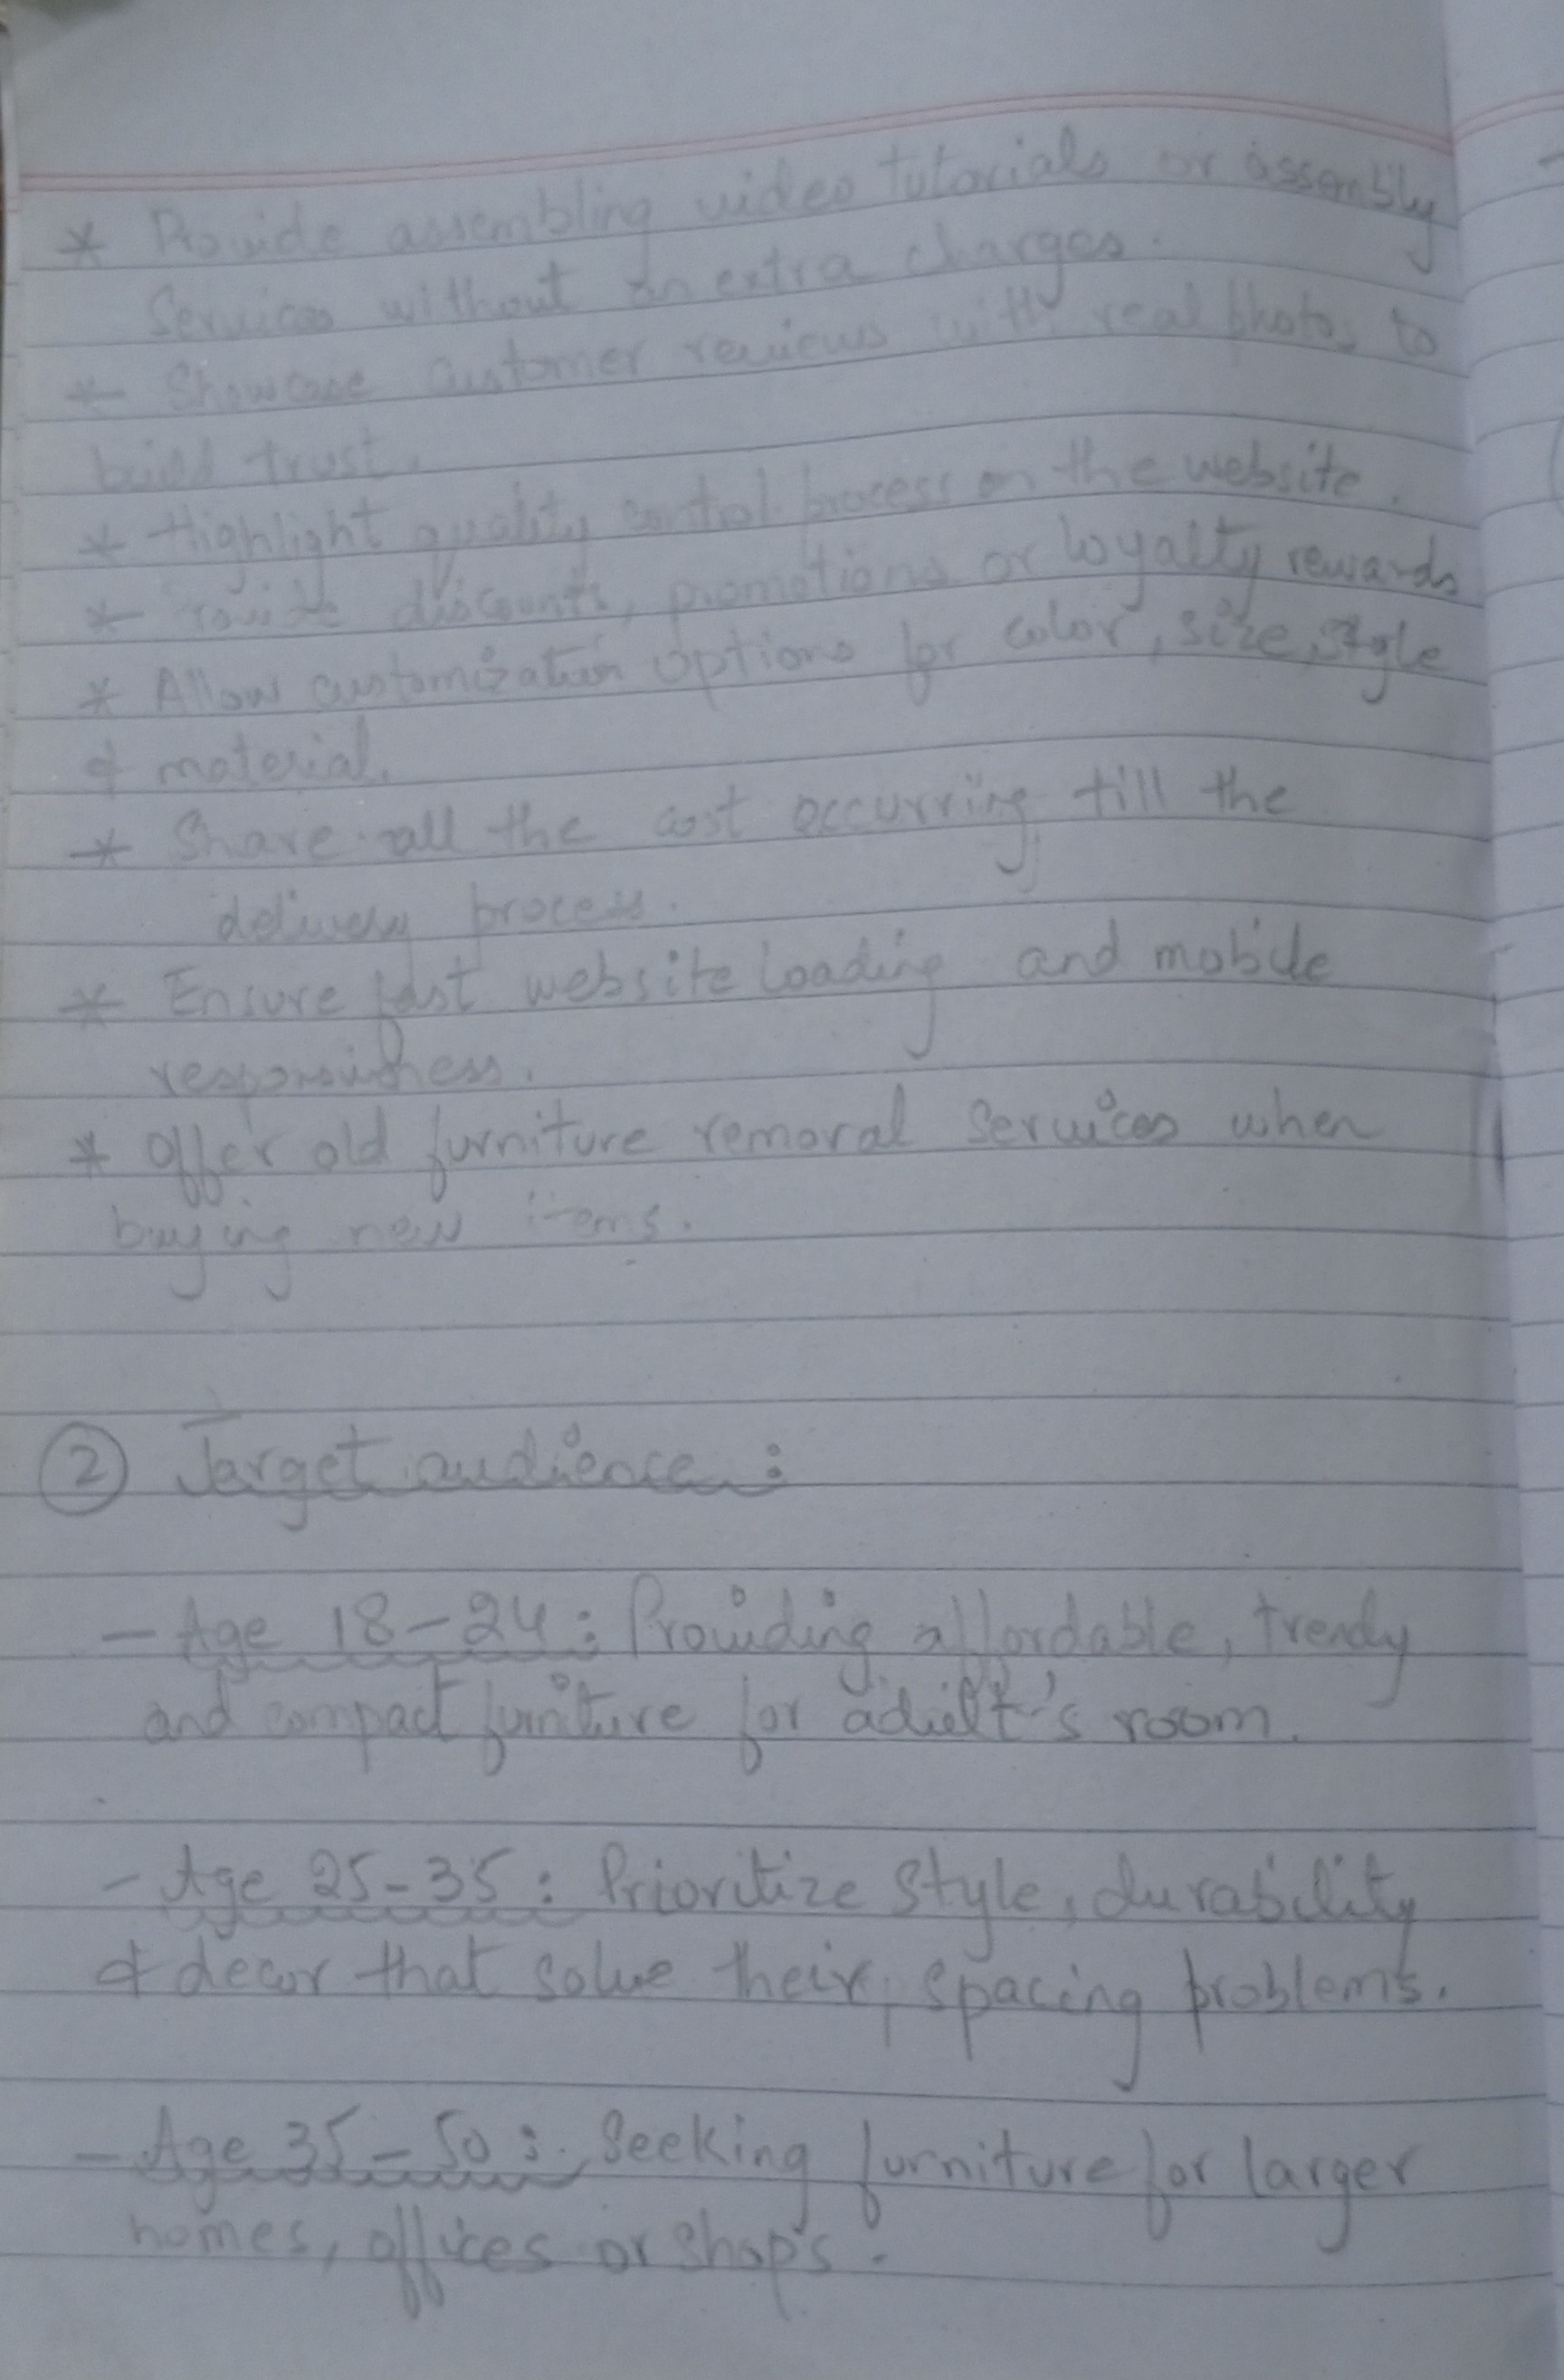 * Provide assembling video tutorials or assembly
Services without an extra charges.
* Showcase customer reviews with real photos to
build trust.
* Highlight quality control process on the website.
* discounts, promotions or loyalty rewards
* Allow customization options for color, size, style
& material.
* Share all the cost occurring till the
delivery process.
* Ensure fast website loading and mobile
responsiveness.
* Offer old furniture removal services when
buying new items.
② Target audience :
- Age 18-24 : Providing affordable, trendy
and compact furniture for adult's room.
- Age 25-35 : Prioritize style, durability
& decor that solve their, spacing problems.
- Age 35-50 : Seeking furniture for larger
homes, offices or shops.